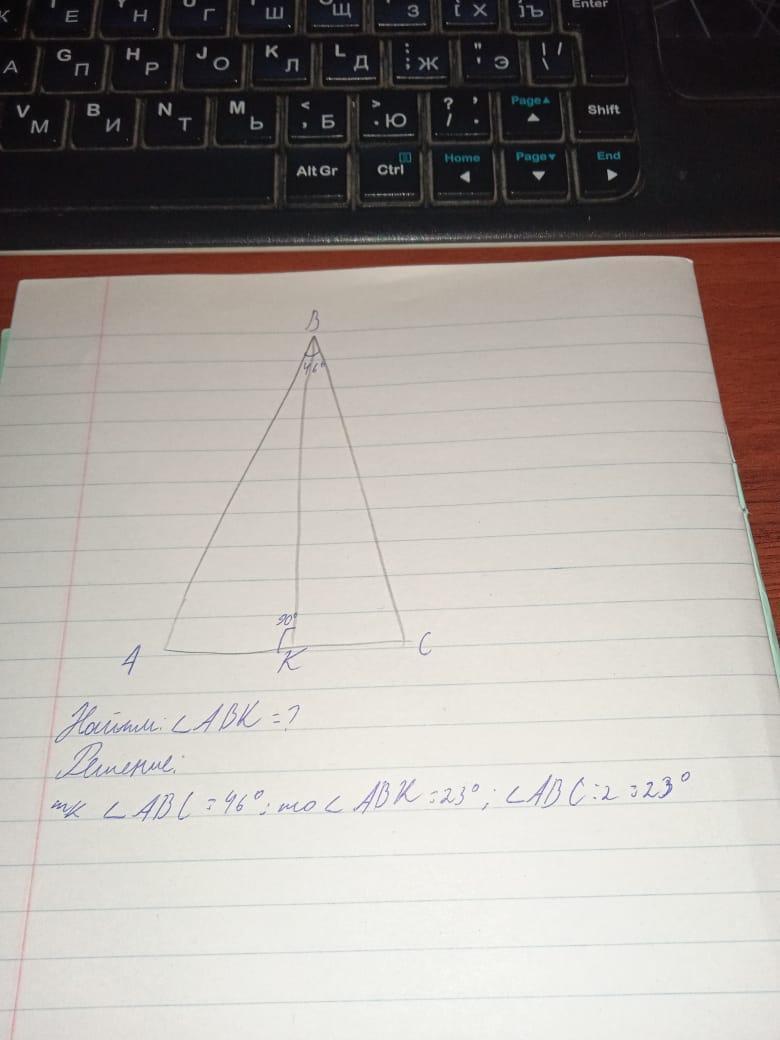 Е Н Г Ш Щ З [ Х ]Ъ Enter
А G П H Р J О K Л L Д ; Ж " ' Э \ /
V М B И N Т M Ь < , Б > . Ю ? / , . Page▲ ▲ Shift
Alt Gr Ctrl Home ◄ Page▼ ▼ End ►
B
46°
90°
A K C
Найти: ∠ABK = ?
Решение:
тк ∠ABC = 46°; то ∠ABK = 23°; ∠ABC : 2 = 23°